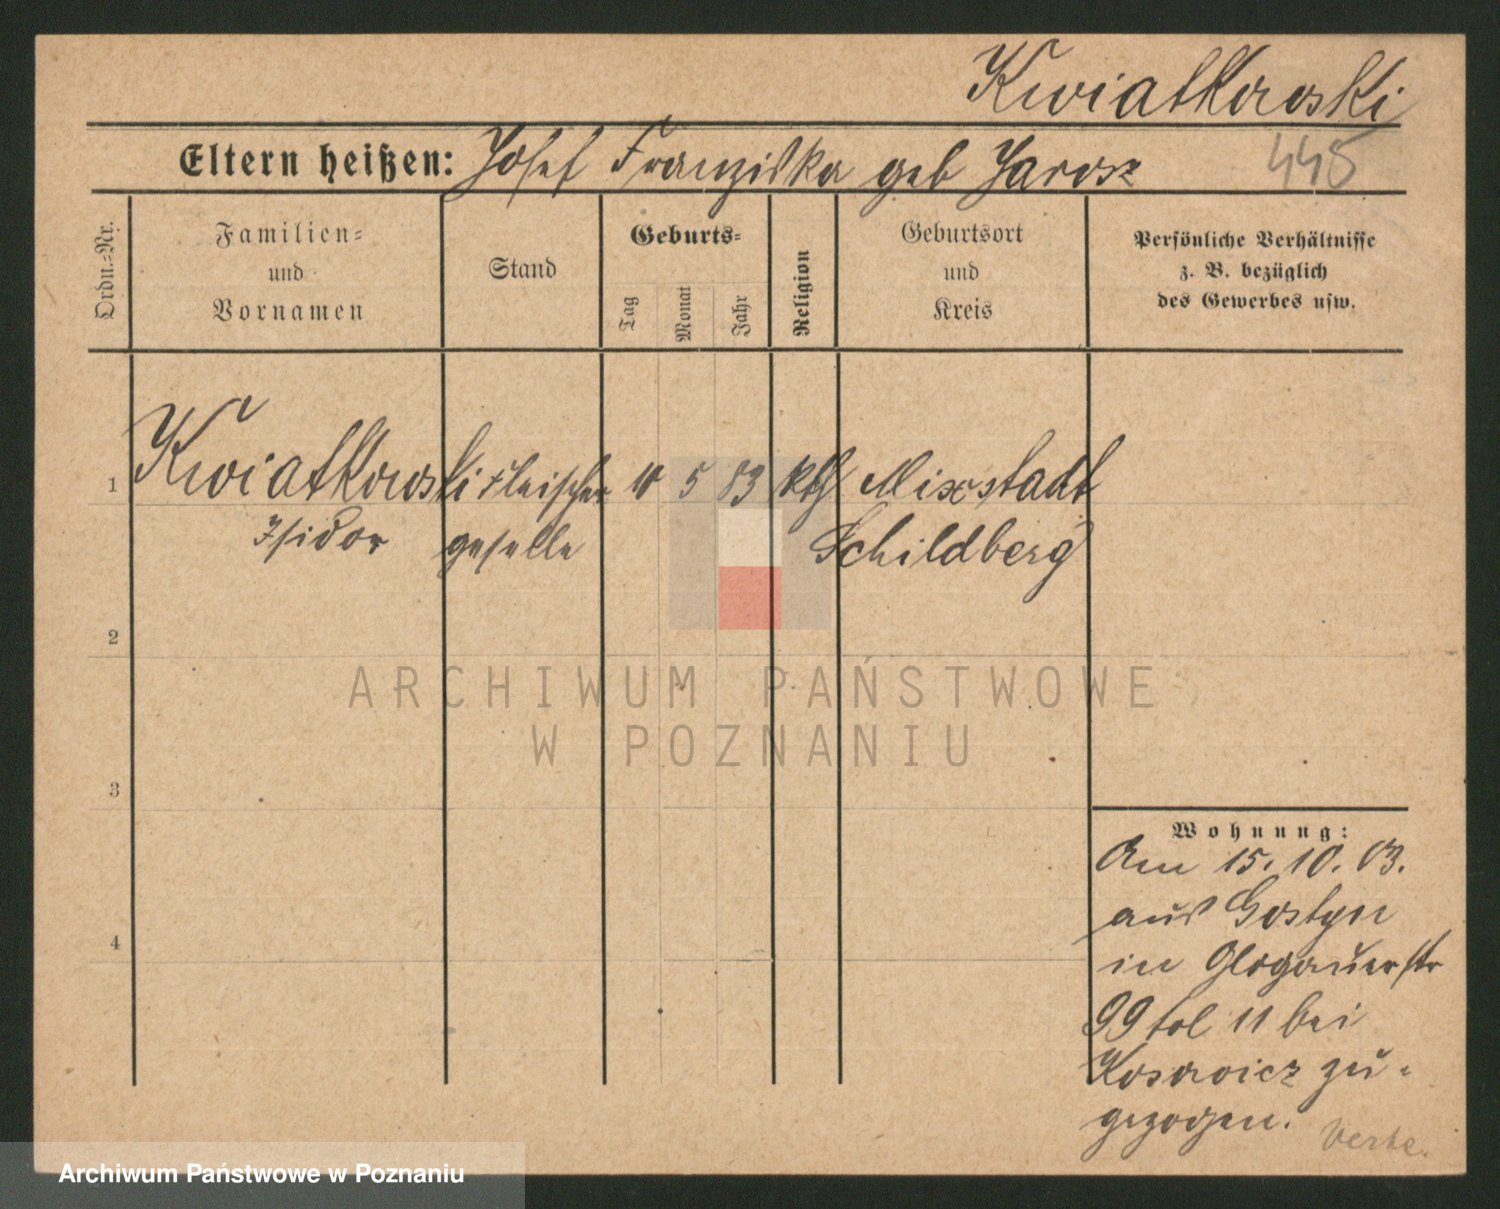 Kwiatkowski
Eltern heißen: Josef Franziska geb Jarosz
448
Ordn.=Nr.
Familien=
und
Vornamen
Stand
Geburts=
Tag
Monat
Jahr
Religion
Geburtsort
und
Kreis
Persönliche Verhältnisse
z. B. bezüglich
des Gewerbes usw.
1 Kwiatkowski Fleischer 10 5 83 kth Mixstadt
Isidor geselle Schildberg
2
3
4
ARCHIWUM PAŃSTWOWE
W POZNANIU
Wohnung:
Am 15. 10. 03.
aus Gostyn
in Glogauerstr
99 11 bei
zu=
gezogen.
Archiwum Państwowe w Poznaniu